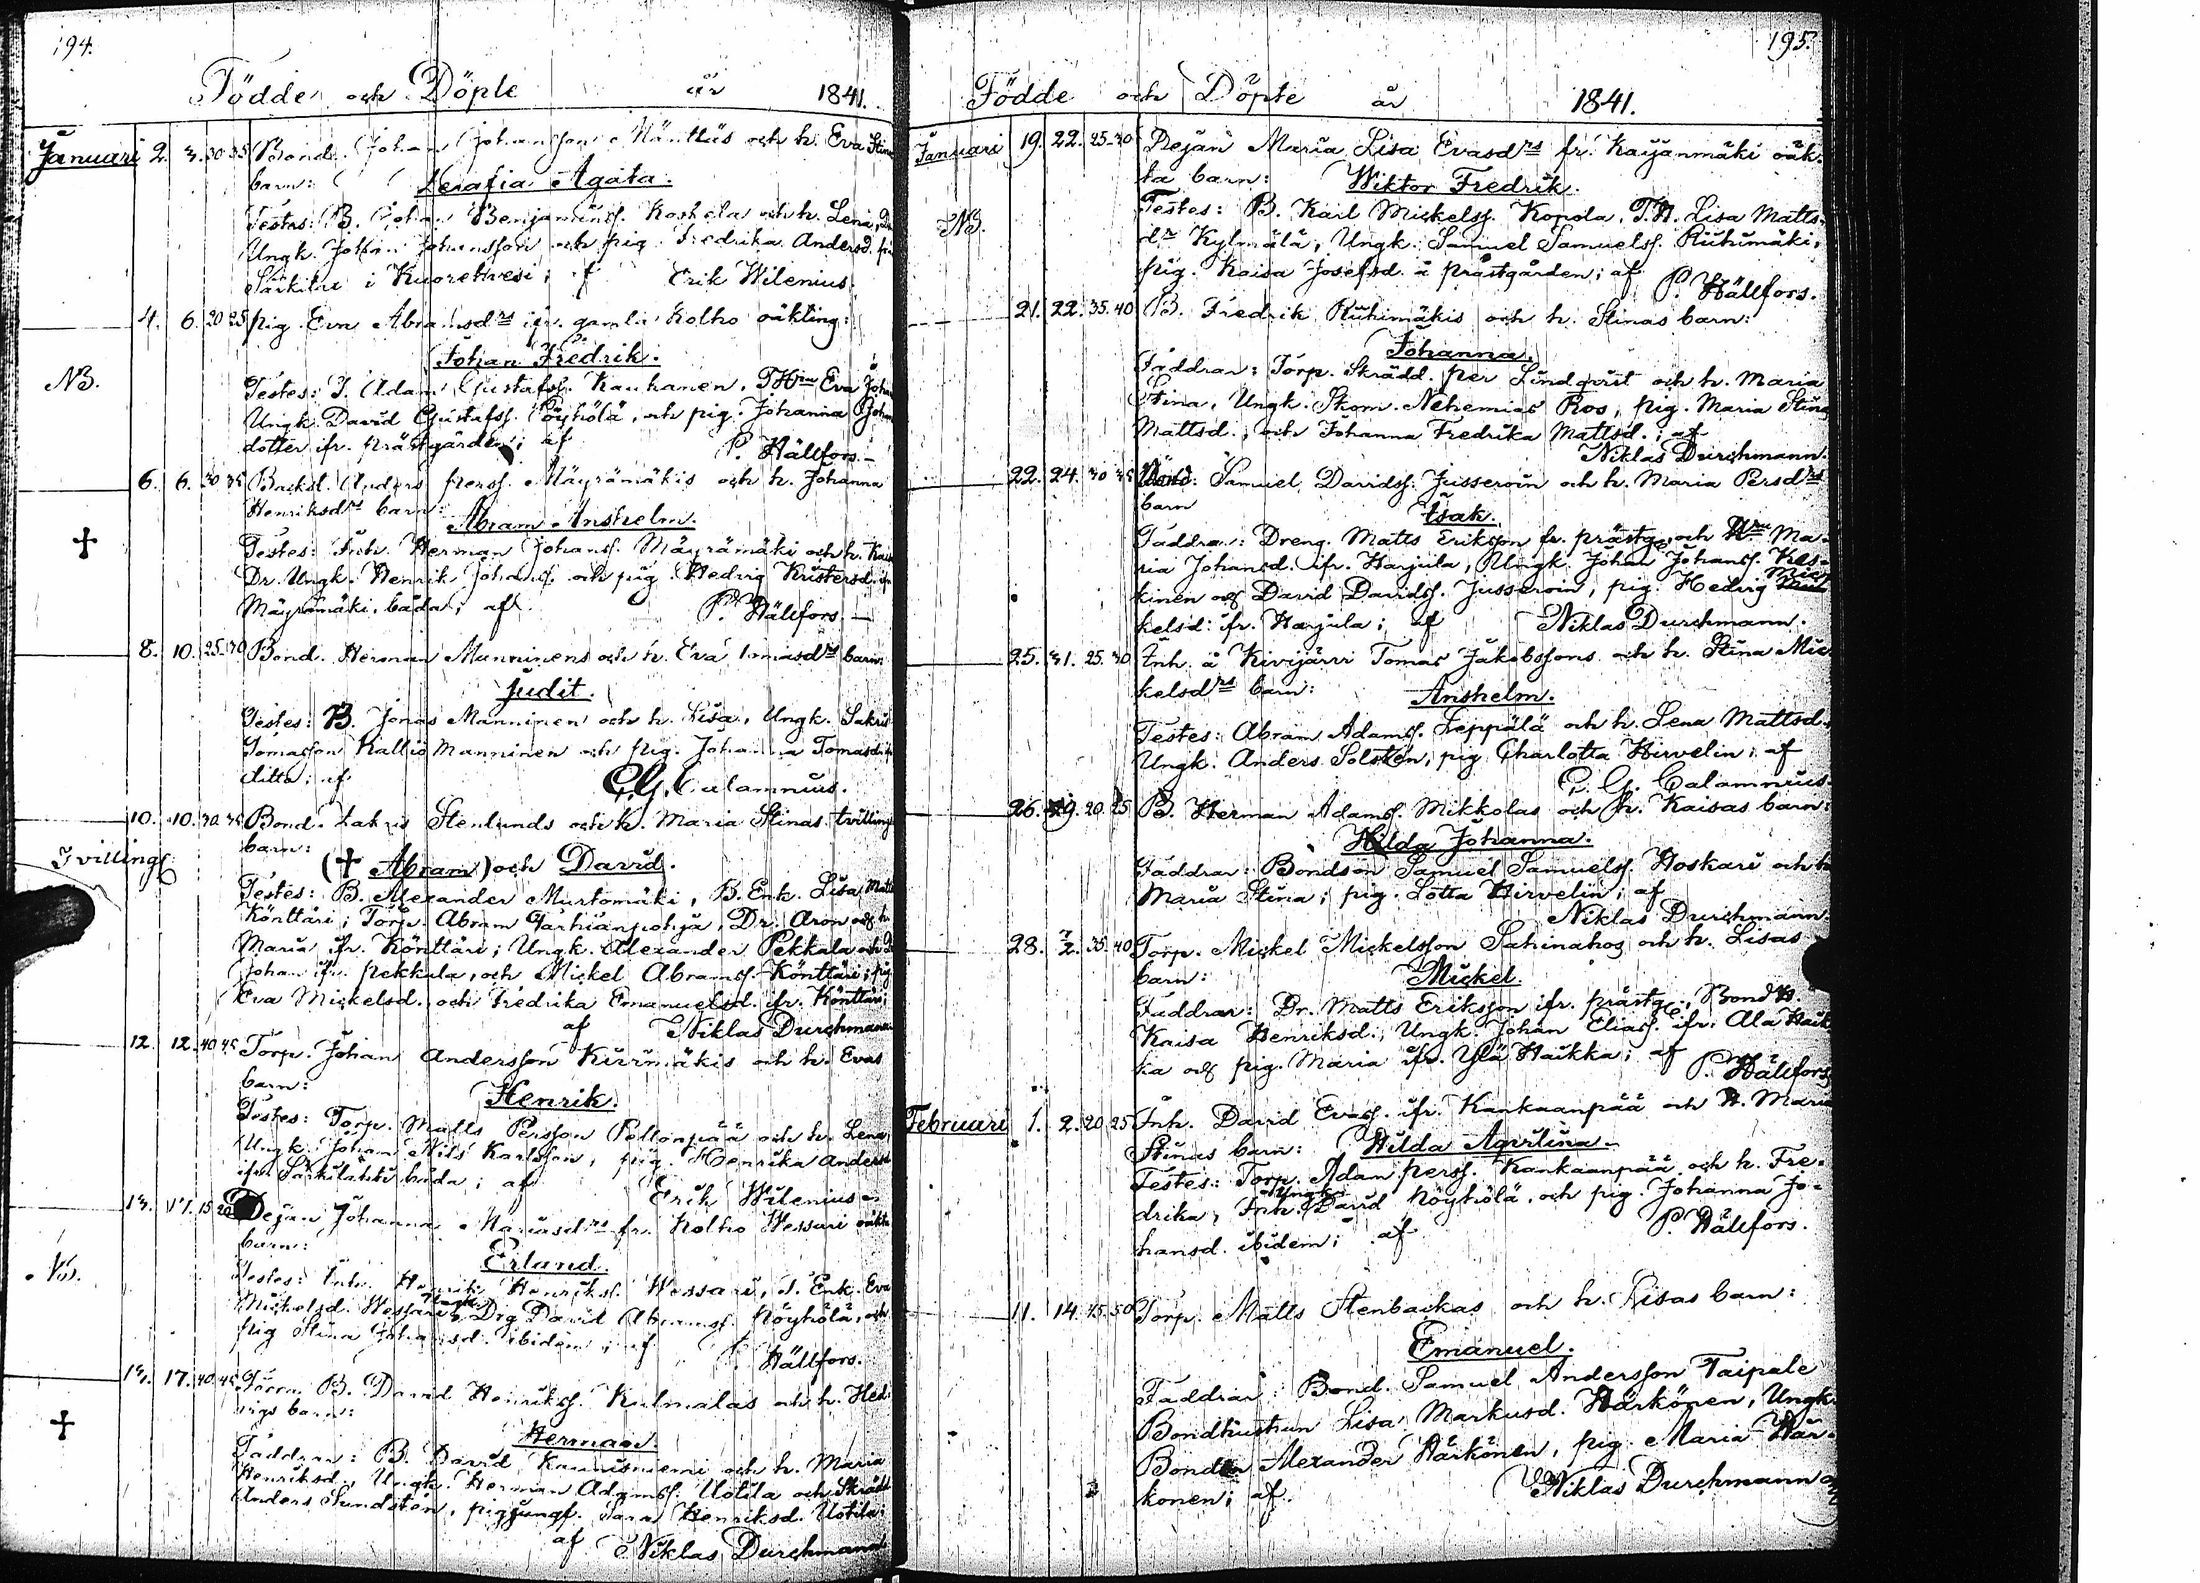 194.
Födde och Döpte år 1841.
Januari 2. 3. 30 35 Bond. Johan Johansson Mänttäs och h. Eva Stinas
barn: Serafia Agata.
Testes: B. Johan Benjaminss. Koskela och h. Lena,
Ungk. Johan Johansson och pig. Fredrika Andersd. fr.
Särkilax i Kuorehvesi; af Erik Wilenius.
4. 6. 20 25 pig. Eva Abramsdrs ifr. gamla Kolho oäkting:
Johan Fredrik.
NB. Testes: I. Adam Gustafss. Kauhanen, THru Eva Johan
Ungk. David Gustafss. Pöyhölä, och pig. Johanna Johans
dotter ifr. prästgården; af
P. Hällfors.
6. 6. 30 35 Backst. Anders Perss. Mäyrämäkis och h. Johanna
Henriksdrs barn: Abram Anshelm.
✝ Testes: Inh. Herman Johanss. Mäyrämäki och h. Kaisa
Dr. Ungk. Henrik Johanss. och pig. Hedvig Kristersd. ifr.
Mäyrämäki, båda; af P. Hällfors.
8. 10. 25-30 Bond. Herman Manninens och h. Eva Tomasdrs barn:
Judit.
Testes: B. Jonas Manninen och h. Lisa, Ungk. Sakris
Tomasson Kallio Manninen och pig. Johanna Tomasd. ifr.
ditto; af C. G. Calamnius.
10. 10. 30 35 Bond. Zakris Stenlunds och h. Maria Stinas tvilling
barn:
Tvilling (✝ Abram) och David.
Testes: B. Alexander Murtomäki, B. Enk. Lisa Matts
Könttäri; Torp. Abram Tarhianpohja, Dr. Aron och h.
Maria ifr. Könttäri; Ungk. Alexander Pekkala och
Johan ifr. Pekkala, och Mickel Abramss. Könttäri; pig
Eva Mickelsd. och Fredrika Emanuelsd. ifr. Könttäri;
af Niklas Durchmann
12. 12. 40 45 Torp. Johan Andersson Kurrmäkis och h. Evas
barn:
Henrik.
Testes: Torp. Matts Persson Pollonpää och h. Lena,
Ungk. Johan Nils Karlsson, pig. Henrika Andersd
ifr. Särkilahti båda; af Erik Wilenius
13. 17. 15 20 Dejan Johanna Mariasdrs fr. Kolho Wessari oäkta
barn:
Erland.
NB. Testes: Inh. Henrik Henrikss. Wessari, I. Enk. Eva
Mickelsd. Wessari, Drg David Abramss. Pöyhölä, och
pig Stina Johansd. ibidem; af P. Hällfors.
13. 17. 40 45 Förra B. David Henrikss. Kulmalas och h. Hed-
vigs barn:
✝ Herman.
Faddrar: B. David Kaunisniemi och h. Maria
Henriksd., Ungk. Herman Adamss. Uotila och Skrädd
Anders Sundsten, pig jungf. Sara Henriksd. Uotila;
af Niklas Durchmann
195.
Födde och Döpte år 1841.
Januari 19. 22. 25-30 Dejan Maria Lisa Evasdrs fr. Kaijanmäki oäk-
ta barn: Wiktor Fredrik.
NB. Testes: B. Karl Mickelss. Kopola, T.H. Lisa Matts-
dr Kylmälä, Ungk. Samuel Samuelss. Ruhimäki,
pig. Kaisa Josefsd. å prästgården; af
P. Hällfors.
21. 22. 35. 40 B. Fredrik Ruhimäkis och h. Stinas barn:
Johanna.
Faddrar: Torp. Skrädd. Per Lindqvist och h. Maria
Stina, Ungk. Skom. Nehemias Ros, pig. Maria Stina
Mattsd., och Johanna Fredrika Mattsd.; af
Niklas Durchmann.
22. 24. 30 35 Bond. Samuel Davidss. Jusseroin och h. Maria Persdrs
barn Isak.
Faddrar: Dreng. Matts Eriksson fr. prästg. och Hru Ma-
ria Johansd. ifr. Harjula, Ungk. Johan Johanss. Kes-
kinen och David Davidss. Jusseroin, pig. Hedvig Mic
kelsd: ifr. Harjula; af Niklas Durchmann.
25. 31. 25. 30 Inh. å Kivijärvi Tomas Jakobssons och h. Stina Mic-
kelsdrs barn: Anshelm.
Testes: Abram Adamss. Leppälä och h. Lena Mattsd.,
Ungk. Anders Solstén, pig. Charlotta Hirvelin; af
C. G. Calamnius.
26. 29. 20 25 B. Herman Adamss. Mikkolas och h. Kaisas barn:
Hilda Johanna.
Faddrar: Bondson Samuel Samuelss. Hoskari och h
Maria Stina; pig. Lotta Hirvelin; af
Niklas Durchmann.
28. 7/2. 35. 40 Torp. Mickel Mickelsson Sahinahos och h. Lisas
barn: Mickel.
Faddrar: Dr. Matts Eriksson ifr. prästg., Bond H.
Kaisa Henriksd., Ungk. Johan Eliass. ifr. Ala Haik
ka och pig. Maria ifr. Ylä Haikka; af P. Hällfors
Februari 1. 2. 20 25 Inh. David Evass. ifr. Kankaanpää och H. Maria
Stinas barn: Hilda Aqvilina.
Testes: Torp. Adam Perss. Kankaanpää och h. Fre-
drika, Inh. Ungk. David Pöyhölä, och pig. Johanna Jo-
hansd. ibidem; af P. Hällfors.
11. 14. 45. 50 Torp. Matts Stenbackas och h. Lisas barn:
Emanuel.
Faddrar: Bond. Samuel Andersson Taipale
Bondhustrun Lisa Markusd. Härkönen, Ungk.
Bonden Alexander Härkönen, pig. Maria Här-
könen; af. Niklas Durchmann